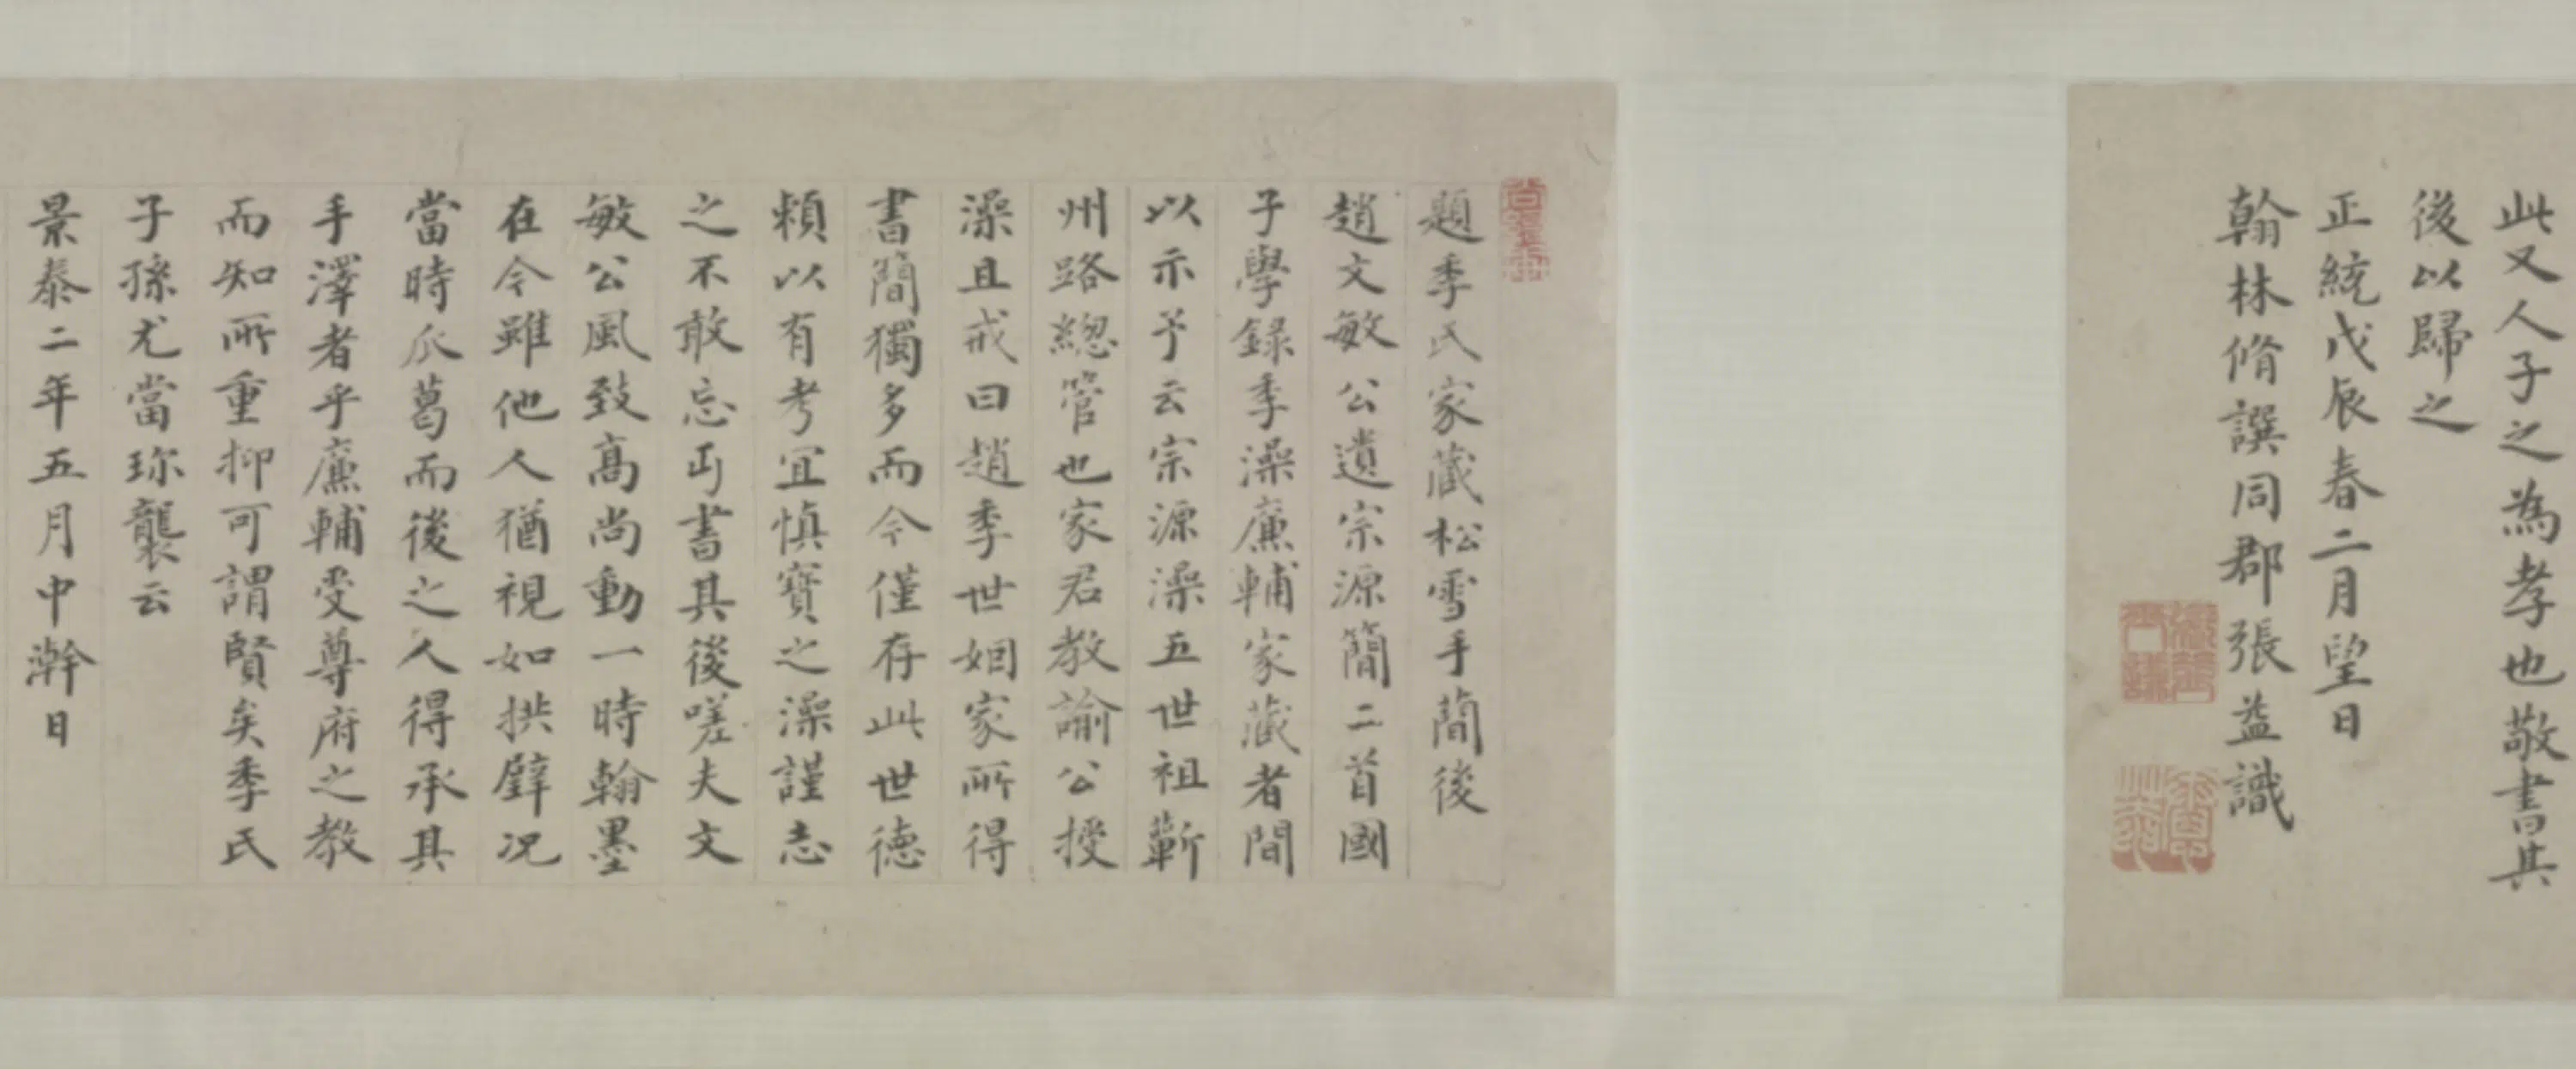 此又人子之為孝也敬書其
後以歸之
正統戊辰春二月望日
翰林脩譔同郡張益識
題季氏家藏松雪手簡後
趙文敏公遺宗源簡二首國
子學録季澡廉輔家藏者間
以示予云宗源澡五世祖蘄
州路總管也家君教諭公授
澡且戒曰趙季世姻家所得
書簡獨多而今僅存此世德
頼以有考宜慎寳之澡謹志
之不敢忘丐書其後嗟夫文
敏公風致髙尚動一時翰墨
在今雖他人猶視如拱璧况
當時瓜葛而後之人得承其
手澤者乎廉輔受尊府之教
而知所重抑可謂賢矣季氏
子孫尤當珎襲云
景泰二年五月中澣日